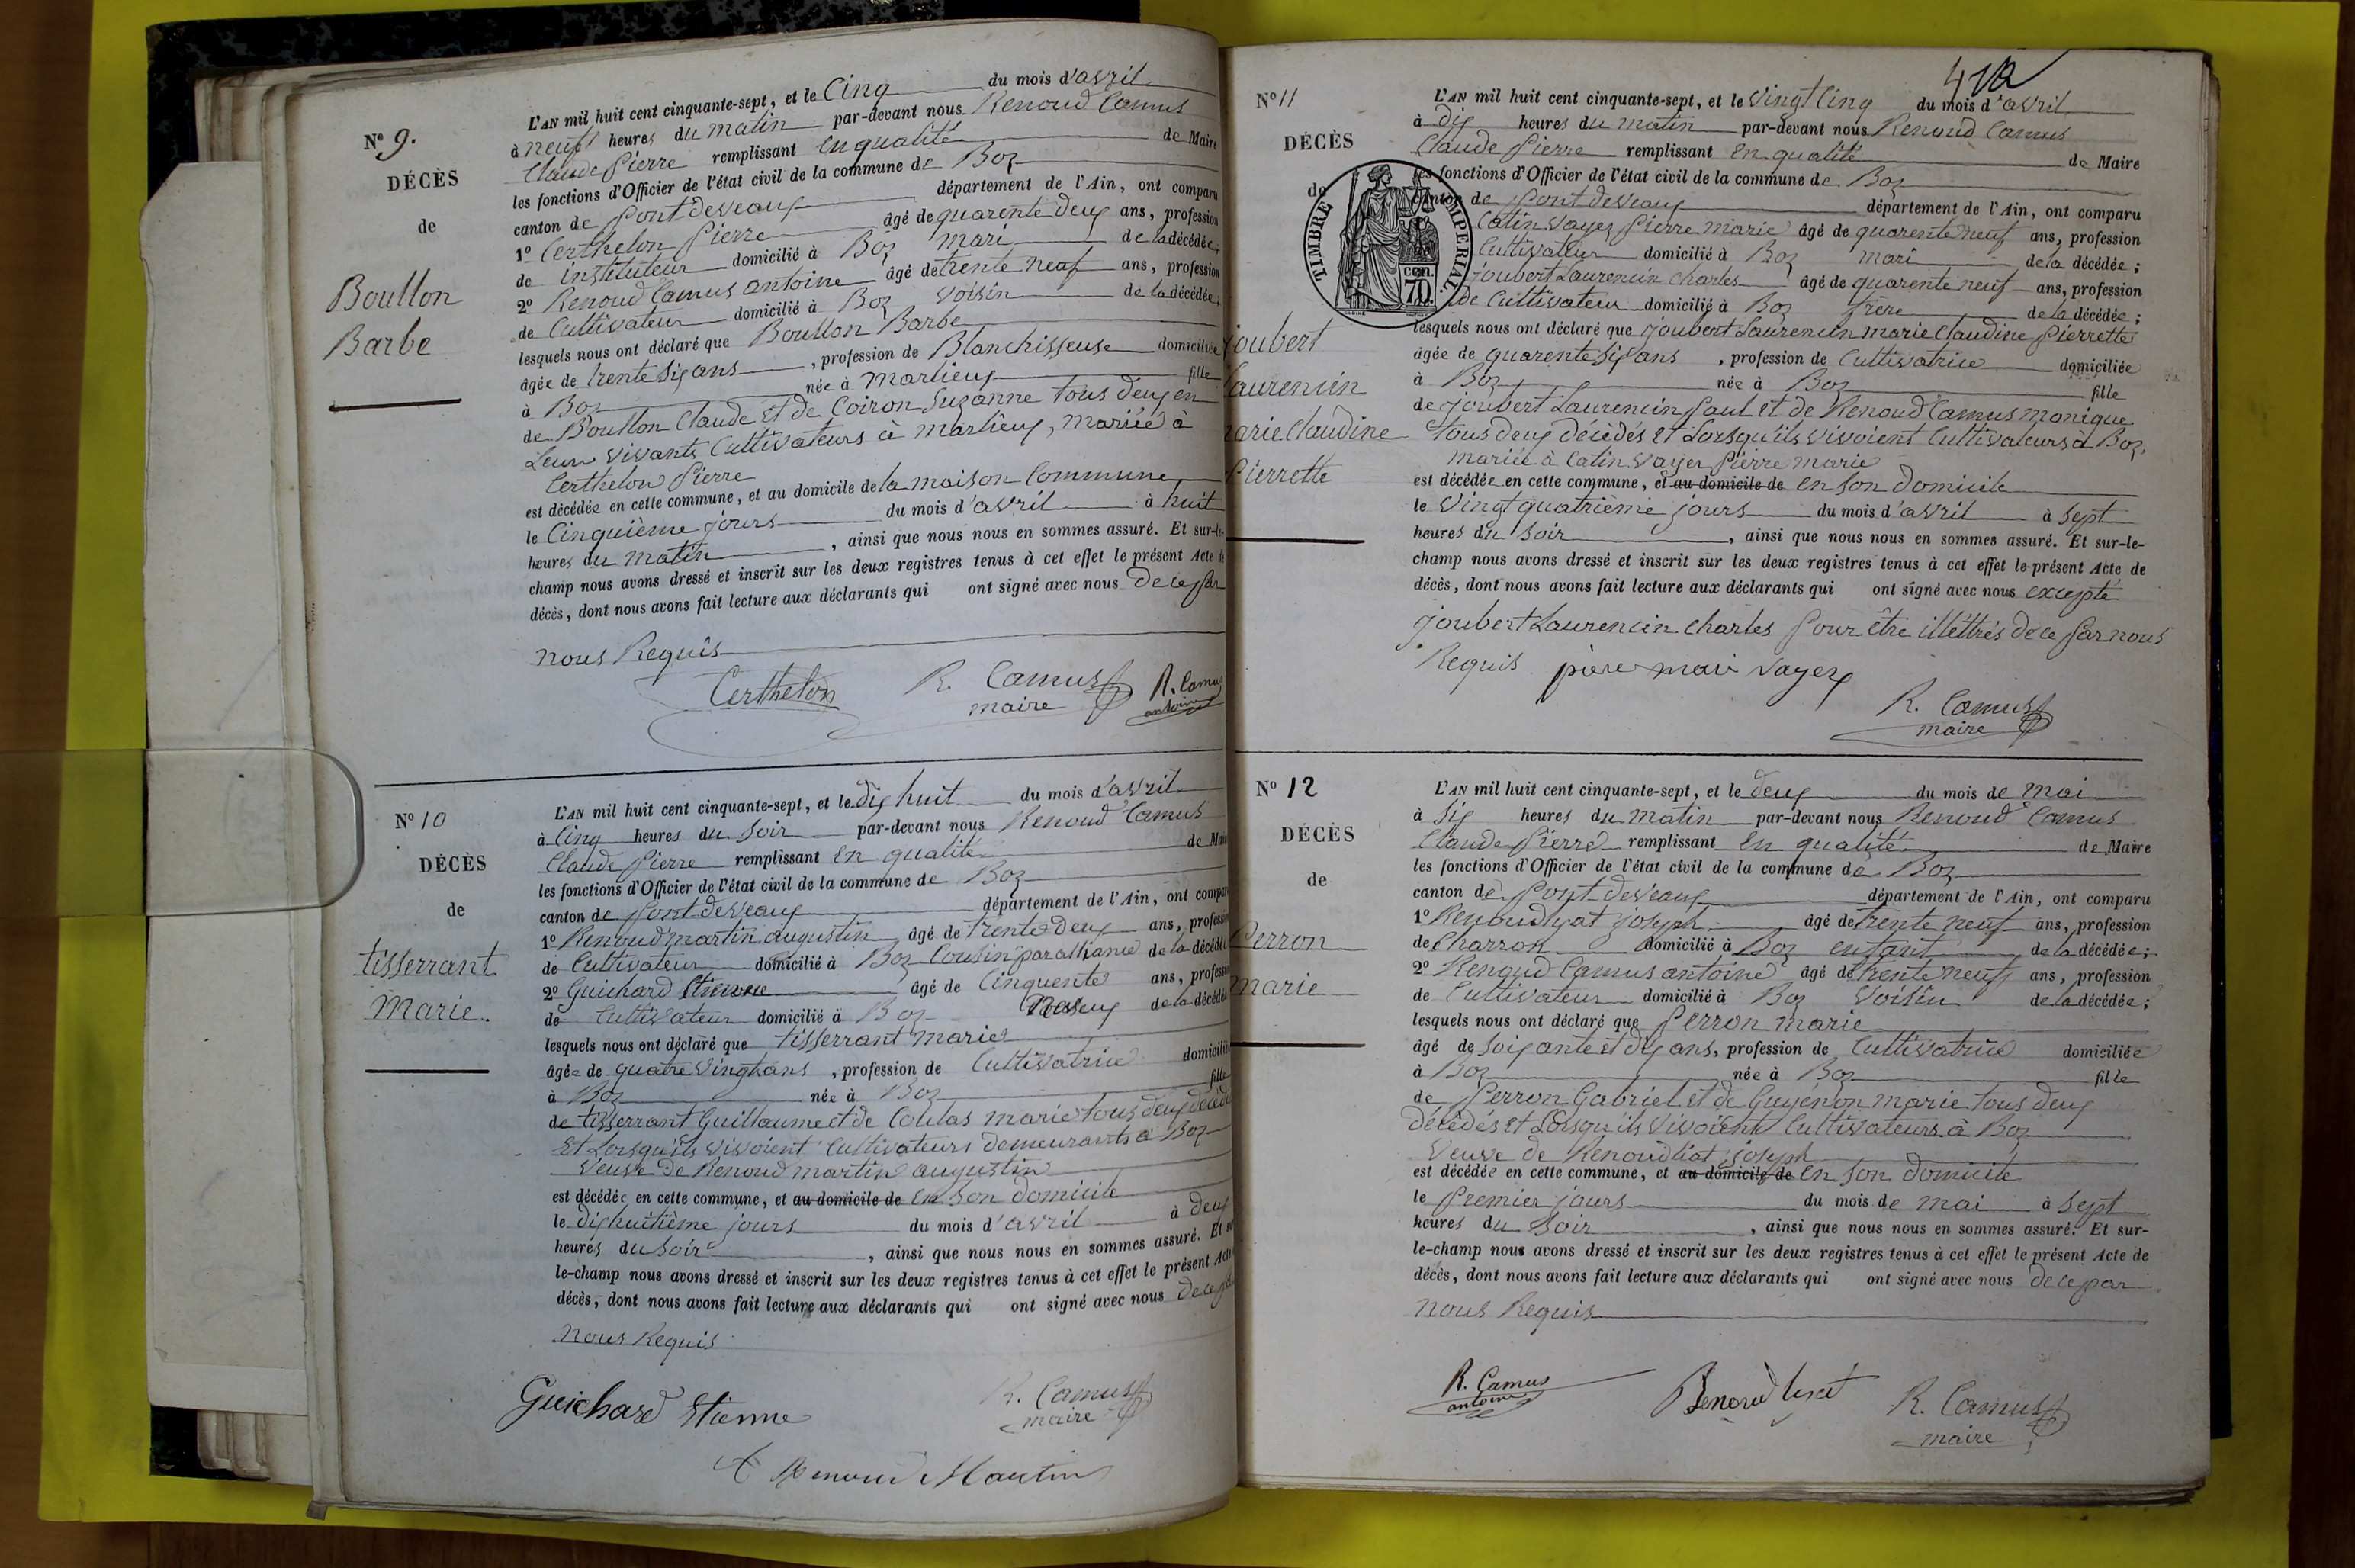 Nº 9.
DÉCÈS
de
Boullon
Barbe
L'AN mil huit cent cinquante-sept, et le Cinq du mois d'avril
à neuf heures du matin par-devant nous Renoud Camus
Claude Pierre remplissant en qualité de Maire
les fonctions d'Officier de l'état civil de la commune de Boz
canton de Pont deveaux département de l'Ain, ont comparu
1º Certhelon Pierre âgé de quarente deux ans, profession
de instituteur domicilié à Boz mari de la décédée;
2º Renoud Camus antoine âgé de trente neuf ans, profession
de Cultivateur domicilié à Boz voisin de la décédée;
lesquels nous ont déclaré que Boullon Barbe
âgée de trente six ans, profession de Blanchisseuse domiciliée
à Boz née à Marlieux fille
de Boullon Claude et de Coiron Suzanne tous deux en
Leur vivants Cultivateurs à marlieux, mariée à
Certhelon Pierre
est décédée en cette commune, et au domicile de la maison Commune
le Cinquième jours du mois d'avril à huit
heures du matin, ainsi que nous nous en sommes assuré. Et sur-le-
champ nous avons dressé et inscrit sur les deux registres tenus à cet effet le présent Acte de
décès, dont nous avons fait lecture aux déclarants qui ont signé avec nous de ce par
nous Requis
Certhelon R. Camus maire R. Camus antoine
Nº 10
DÉCÈS
de
tisserrant
Marie.
L'AN mil huit cent cinquante-sept, et le dix huit du mois d'avril
à Cinq heures du Soir par-devant nous Renoud Camus
Claude Pierre remplissant en qualité de Maire
les fonctions d'Officier de l'état civil de la commune de Boz
canton de Pont deveaux département de l'Ain, ont comparu
1º Renoud martin augustin âgé de trente deux ans, profession
de Cultivateur domicilié à Boz Cousin par alliance de la décédée
2º Guichard Etienne âgé de Cinquente ans, profession
de Cultivateur domicilié à Boz Neveux de la décédée
lesquels nous ont déclaré que tisserrant marie
âgée de quatre vingt ans, profession de Cultivatrice domiciliée
à Boz née à Boz fille
de tisserrant Guillaume et de Coulas marie tous deux décédés
Et Lorsqu'ils vivoient Cultivateurs demeurants à Boz
Veuve de Renoud martin augustin
est décédée en cette commune, et au domicile de en Son domicile
le dixhuitième jours du mois d'avril à deux
heures du soir, ainsi que nous nous en sommes assuré. Et sur
le-champ nous avons dressé et inscrit sur les deux registres tenus à cet effet le présent Acte
décès, dont nous avons fait lecture aux déclarants qui ont signé avec nous de ce par
nous Requis
Guichard Etienne R. Camus maire
A Renoud Martin
412
Nº 11
DÉCÈS
de
TIMBRE IMPERIAL
70 cen.
joubert
Laurencin
marie Claudine
Pierrette
L'AN mil huit cent cinquante-sept, et le vingt Cinq du mois d'avril
à dix heures du matin par-devant nous Renoud Camus
Claude Pierre remplissant en qualité de Maire
les fonctions d'Officier de l'état civil de la commune de Boz
canton de Pont deveaux département de l'Ain, ont comparu
Catin vayer Pierre marie âgé de quarente neuf ans, profession
Cultivateur domicilié à Boz mari de la décédée;
joubert Laurencin Charles âgé de quarente neuf ans, profession
de Cultivateur domicilié à Boz frere de la décédée;
lesquels nous ont déclaré que joubert Laurencin marie Claudine Pierrette
âgée de quarente six ans, profession de Cultivatrice domiciliée
à Boz née à Boz fille
de joubert Laurencin Paul et de Renoud Camus monique
tous deux décédés et Lorsqu'ils vivoient Cultivateurs à Boz,
mariée à Catin vayer Pierre marie
est décédée en cette commune, et au domicile de en son domicile
le vingt quatrième jours du mois d'avril à sept
heures du Soir, ainsi que nous nous en sommes assuré. Et sur-le-
champ nous avons dressé et inscrit sur les deux registres tenus à cet effet le présent Acte de
décès, dont nous avons fait lecture aux déclarants qui ont signé avec nous excepté
joubert Laurencin Charles Pour être illettrés de ce Par nous
Requis piere mari vayer
R. Camus maire
Nº 12
DÉCÈS
de
Perron
marie
L'AN mil huit cent cinquante-sept, et le deux du mois de mai
à Six heures du matin par-devant nous Renoud Camus
Claude Pierre remplissant en qualité de Maire
les fonctions d'Officier de l'état civil de la commune de Boz
canton de Pont deveaux département de l'Ain, ont comparu
1º Renoud liat joseph âgé de trente neuf ans, profession
de Charron domicilié à Boz enfant de la décédée;
2º Renoud Camus antoine âgé de trente neuf ans, profession
de Cultivateur domicilié à Boz voisin de la décédée;
lesquels nous ont déclaré que Perron marie
âgé de soixante et dix ans, profession de Cultivatrice domiciliée
à Boz née à Boz fille
de Perron Gabriel et de Guyénon marie tous deux
décédés et Lorsqu'ils vivoient Cultivateurs à Boz
Veuve de Renoud liat joseph
est décédée en cette commune, et au domicile de en Son domicile
le Premier jours du mois de mai à sept
heures du Soir, ainsi que nous nous en sommes assuré. Et sur-
le-champ nous avons dressé et inscrit sur les deux registres tenus à cet effet le présent Acte de
décès, dont nous avons fait lecture aux déclarants qui ont signé avec nous de ce par
nous Requis
R. Camus antoine Renoud R. Camus maire